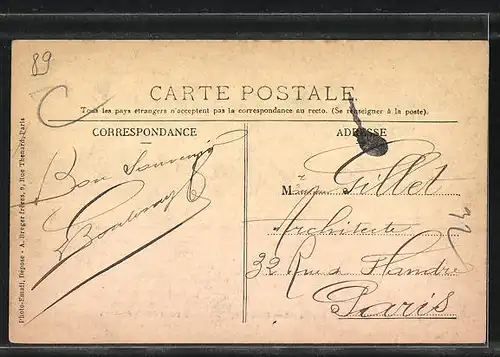 89
CARTE POSTALE
Tous les pays étrangers n'acceptent pas la correspondance au recto. (Se renseigner à la poste).
CORRESPONDANCE
ADRESSE
Bon Souvenir
M Gillet
Architecte
32 Rue de Flandre
Paris
Photo-Émail, Déposé - A. Breger frères, 9, Rue Thénard, Paris